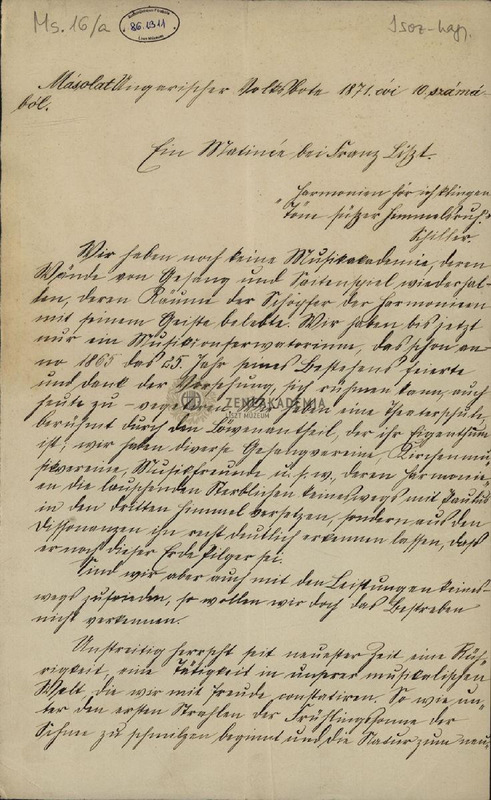 Ms. 16/a
86.1311
Isoz-hagy.
Másolat Ungarischer Volksbote 1871. évi 10. számá-
ból.
Ein Matinée bei Franz Liszt.
Harmonien hör ich klingen
Töne süßer Himmelsruh.
Schiller.
Wir haben noch keine Musikakademie, deren
Wände von Gesang und Saitenspiel wiederhal-
len, deren Räume der Schöpfer der Harmonieen
mit seinem Geiste belebte. Wir haben bis jetzt
nur ein Musikkonservatorium, das schon an-
no 1865 das 25. Jahr seines Bestehens feierte
und dank der Vorsehung, sich rühmen kann, auch
heute zu – vegetiren. Wir haben eine Theaterschule,
ZENEAKADÉMIA
LISZT MÚZEUM
berühmt durch den Löwenantheil, der ihr Eigenthum
ist; wir haben diverse Gesangvereine Kirchenmu-
sikvereine, Musikfreunde u. s. w., deren Harmonie-
en die lauschenden Sterblichen keineswegs mit Paulus
in den dritten Himmel versetzen, sondern aus den
Dissonanzen ihn recht deutlich erkennen lassen, daß
er noch dieser Erde Pilger sei.
Sind wir aber auch mit den Leistungen keines-
wegs zufrieden, so wollen wir doch das Bestreben
nicht verkennen.
Unstreitig herrscht seit neuester Zeit eine Rüh-
rigkeit, eine Tätigkeit in unserer musikalischen
Welt, die wir mit Freude constatiren. So wie un-
ter den ersten Strahlen der Frühlingssonne der
Schnee zu schmelzen beginnt und die Natur zum neu-